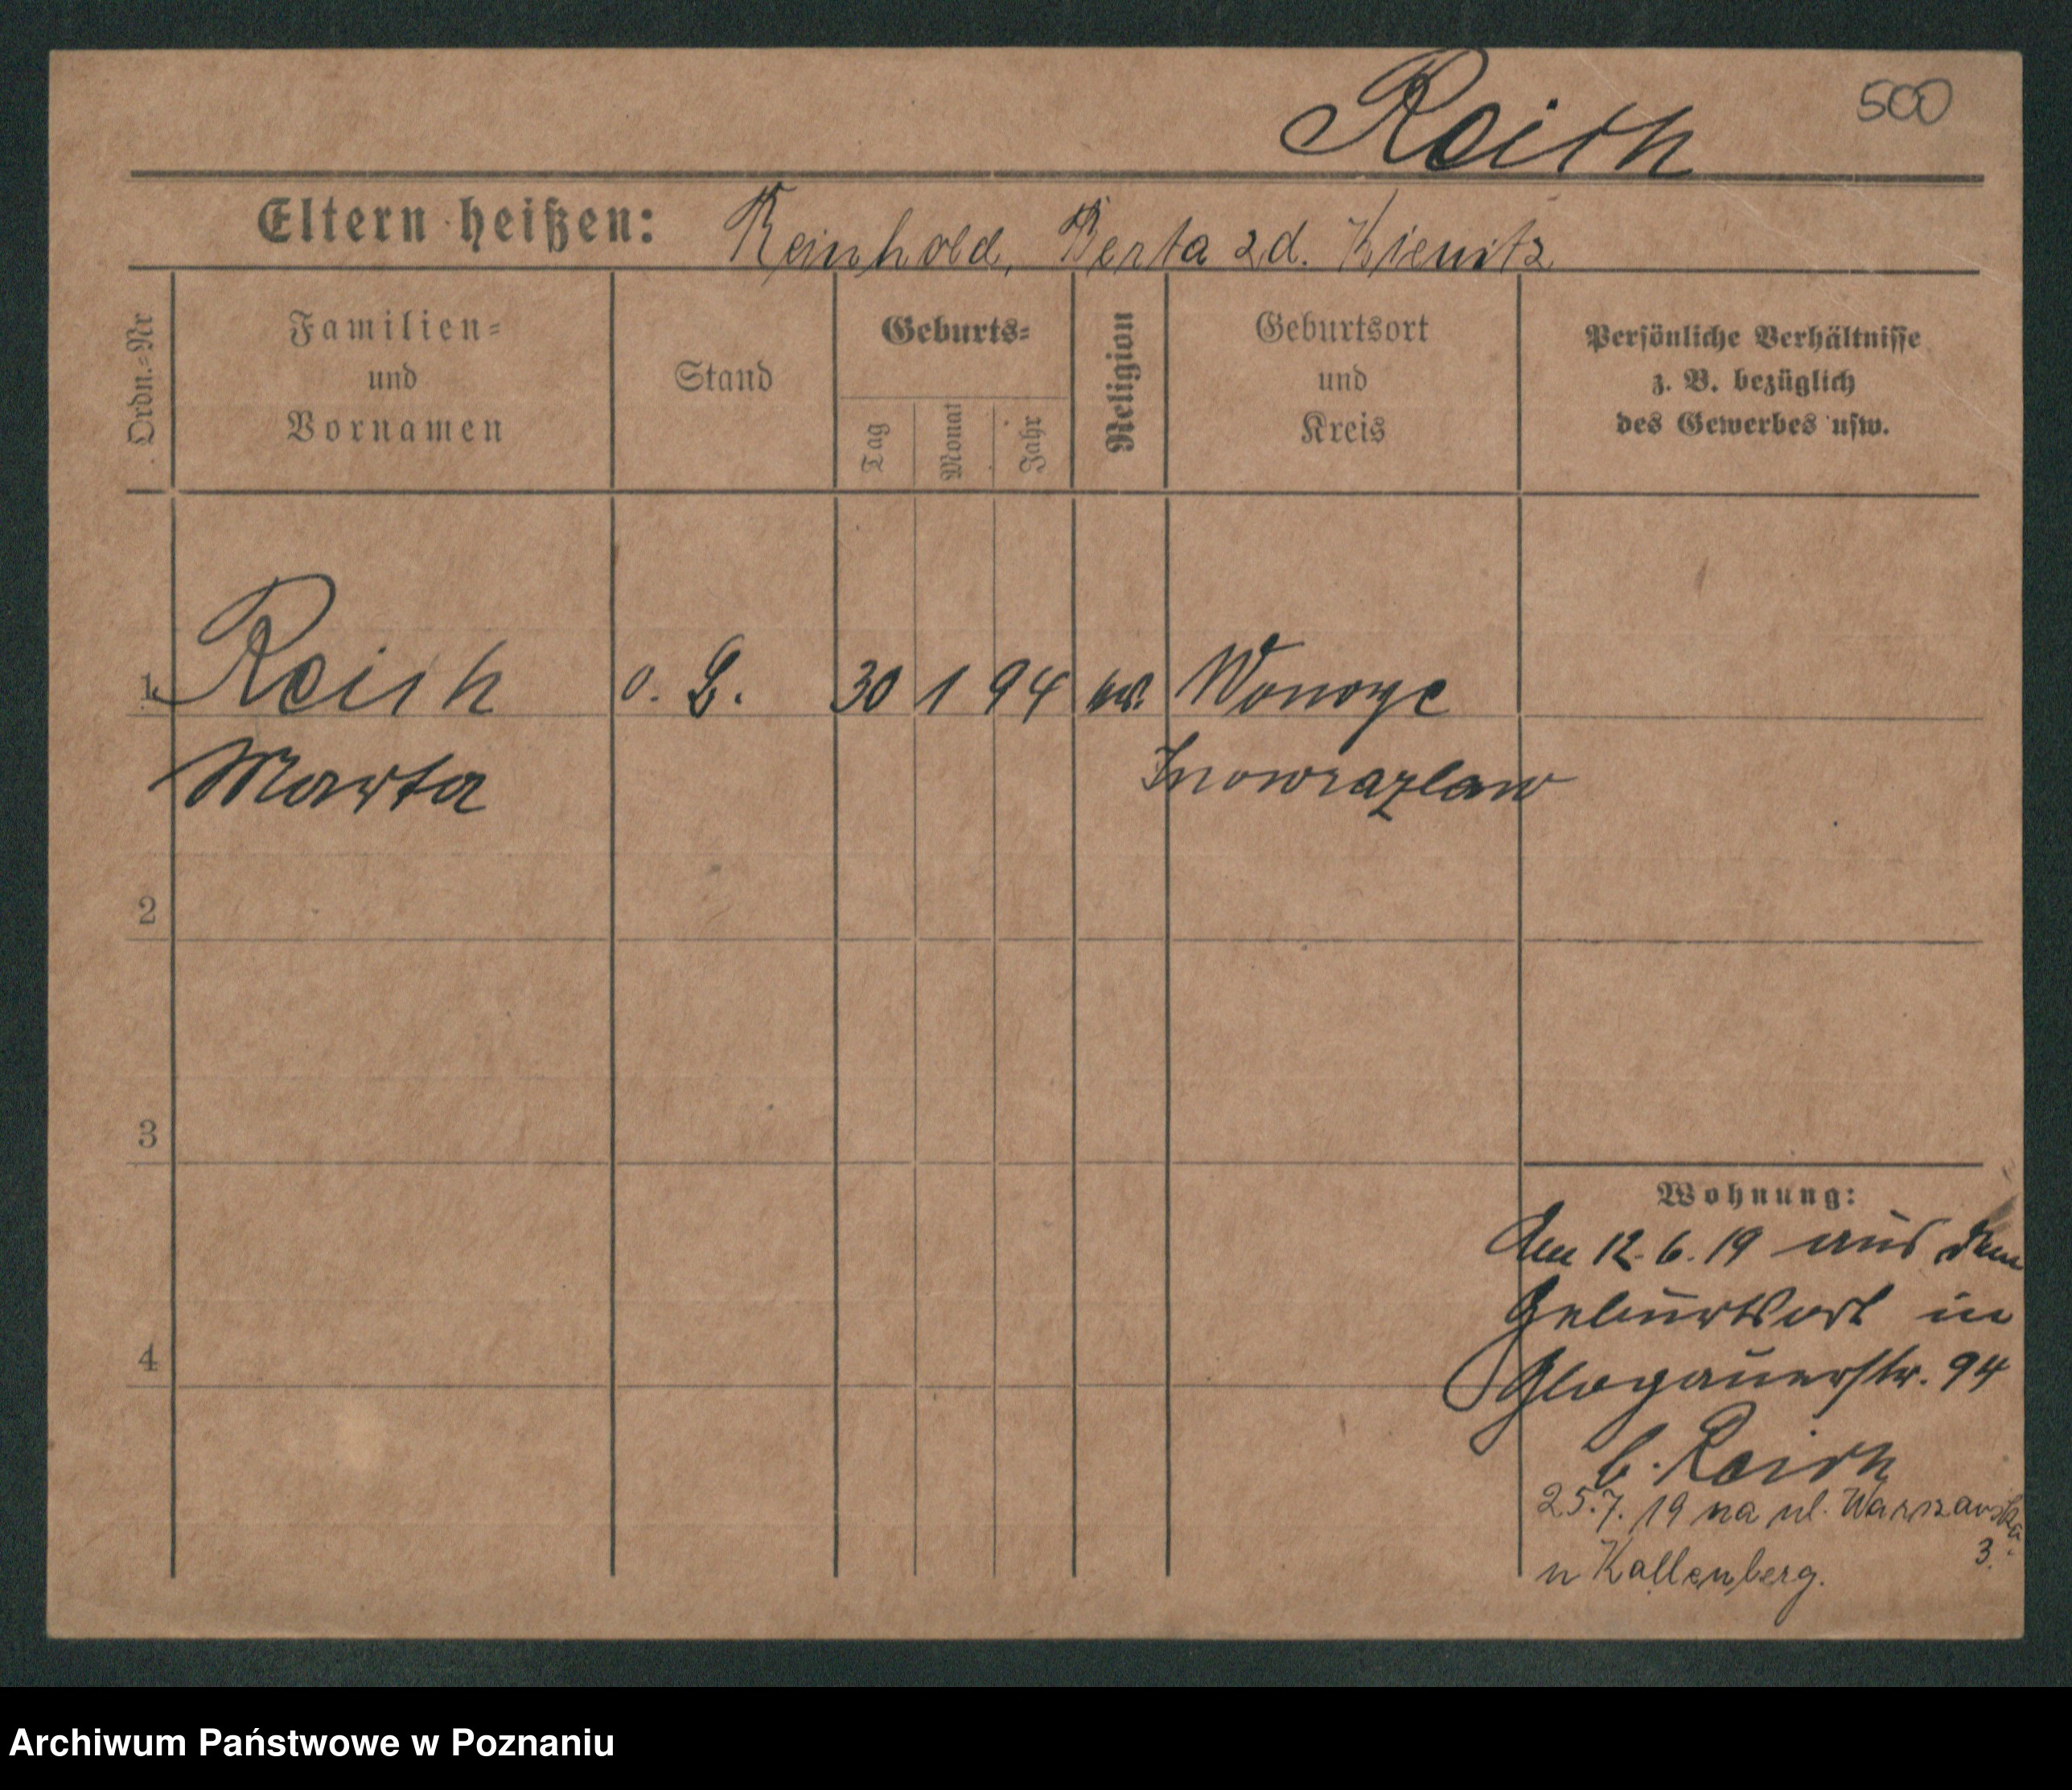 Reich
500
Eltern heißen: Reinhold, Berta zd. Kienitz
Ordn.-Nr
Familien-
und
Vornamen
Stand
Geburts-
Tag
Monat
Jahr
Religion
Geburtsort
und
Kreis
Persönliche Verhältnisse
z. B. bezüglich
des Gewerbes usw.
1 Reich o. G. 30 1 94 Wonorze
Marta Inowrazlaw
2
3
4
Wohnung:
Am 12.6.19 aus dem
Geburtsort in
Glogauerstr. 94
b. Reich
25.7.19 na ul. Warszawska
3.
u Kallenberg.
Archiwum Państwowe w Poznaniu